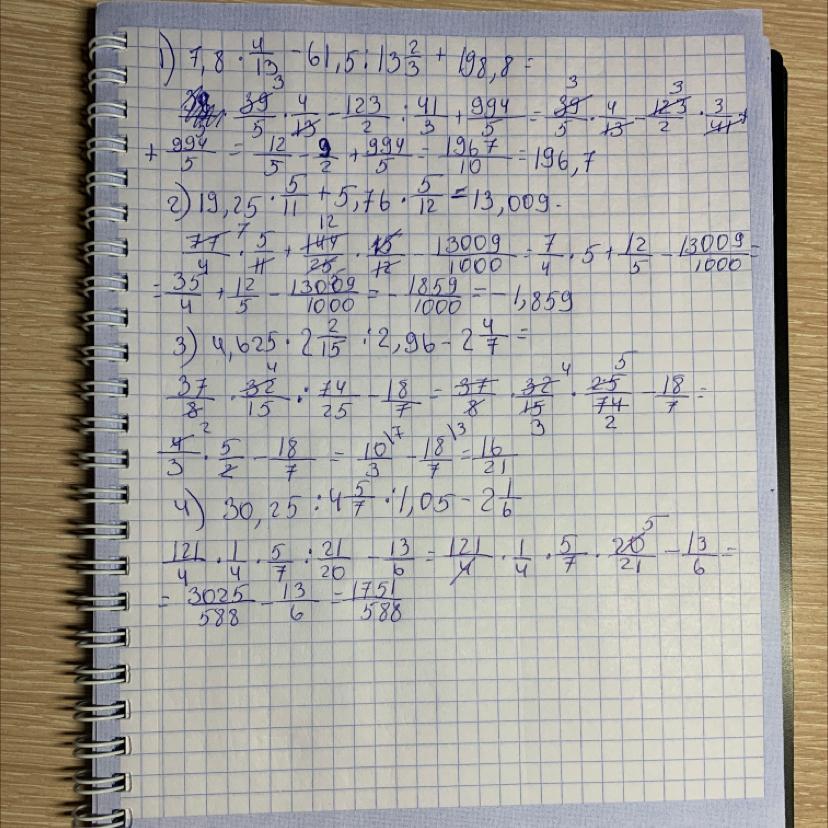 1) 7,8 · 4/13 - 61,5 : 13 2/3 + 198,8 =
39/5 · 4/13 - 123/2 : 41/3 + 994/5 = 39/5 · 4/13 - 123/2 · 3/41 +
+ 994/5 = 12/5 - 9/2 + 994/5 = 1967/10 = 196,7
2) 19,25 · 5/11 + 5,76 · 5/12 - 13,009.
77/4 · 5/11 + 144/25 · 15/12 - 13009/1000 = 7/4 · 5 + 12/5 - 13009/1000 =
= 35/4 + 12/5 - 13009/1000 = - 1859/1000 = -1,859
3) 4,625 · 2 2/15 : 2,96 - 2 4/7 =
37/8 · 32/15 : 74/25 - 18/7 = 37/8 · 32/15 · 25/74 - 18/7 =
4/3 · 5/2 - 18/7 = 10/3 \7 - 18/7 \3 = 16/21
4) 30,25 : 4 5/7 : 1,05 - 2 1/6
121/4 · 1/4 · 5/7 : 21/20 - 13/6 = 121/4 · 1/4 · 5/7 · 20/21 - 13/6 =
= 3025/588 - 13/6 = 1751/588